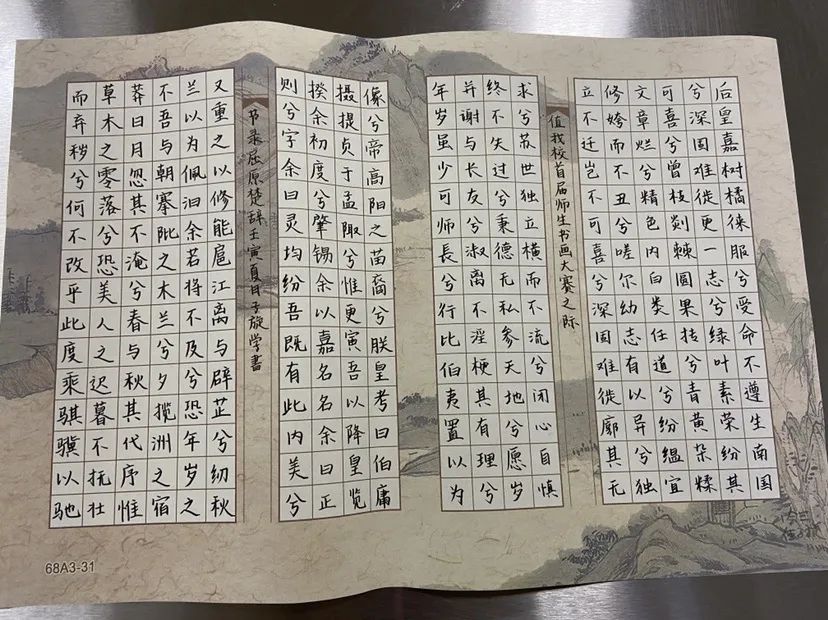 后皇嘉树橘徕服兮受命不遵生南国
兮深固难徙更一志兮绿叶素荣纷其
可喜兮曾枝剡棘圆果抟兮青黄杂糅
文章烂兮精色内白类任道兮纷缊宜
修姱而不丑兮嗟尔幼志有以异兮独
立不迁岂不可喜兮深固难徙廓其无
值我校首届师生书画大赛之际
求兮苏世独立横而不流兮闭心自慎
终不失过兮秉德无私参天地兮愿岁
并谢与长友兮淑离不淫梗其有理兮
年岁虽少可师長兮行比伯夷置以为
像兮帝高阳之苗裔兮朕皇考曰伯庸
摄提贞于孟陬兮惟更寅吾以降皇览
揆余初度兮肇锡余以嘉名名余曰正
则兮字余曰灵均纷吾既有此内美兮
节录屈原楚辞壬寅夏日子旋学书
又重之以修能扈江离与辟芷兮纫秋
兰以为佩汩余若将不及兮恐年岁之
不吾与朝搴阰之木兰兮夕揽洲之宿
莽日月忽其不淹兮春与秋其代序惟
草木之零落兮恐美人之迟暮不抚壮
而弃秽兮何不改乎此度乘骐骥以驰
68A3-31